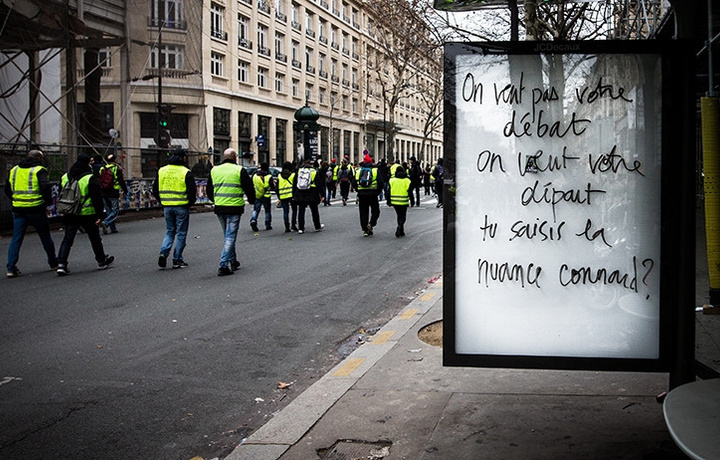 JCDecaux
On veut pas votre
débat
on veut votre
départ
tu saisis la
nuance connard?